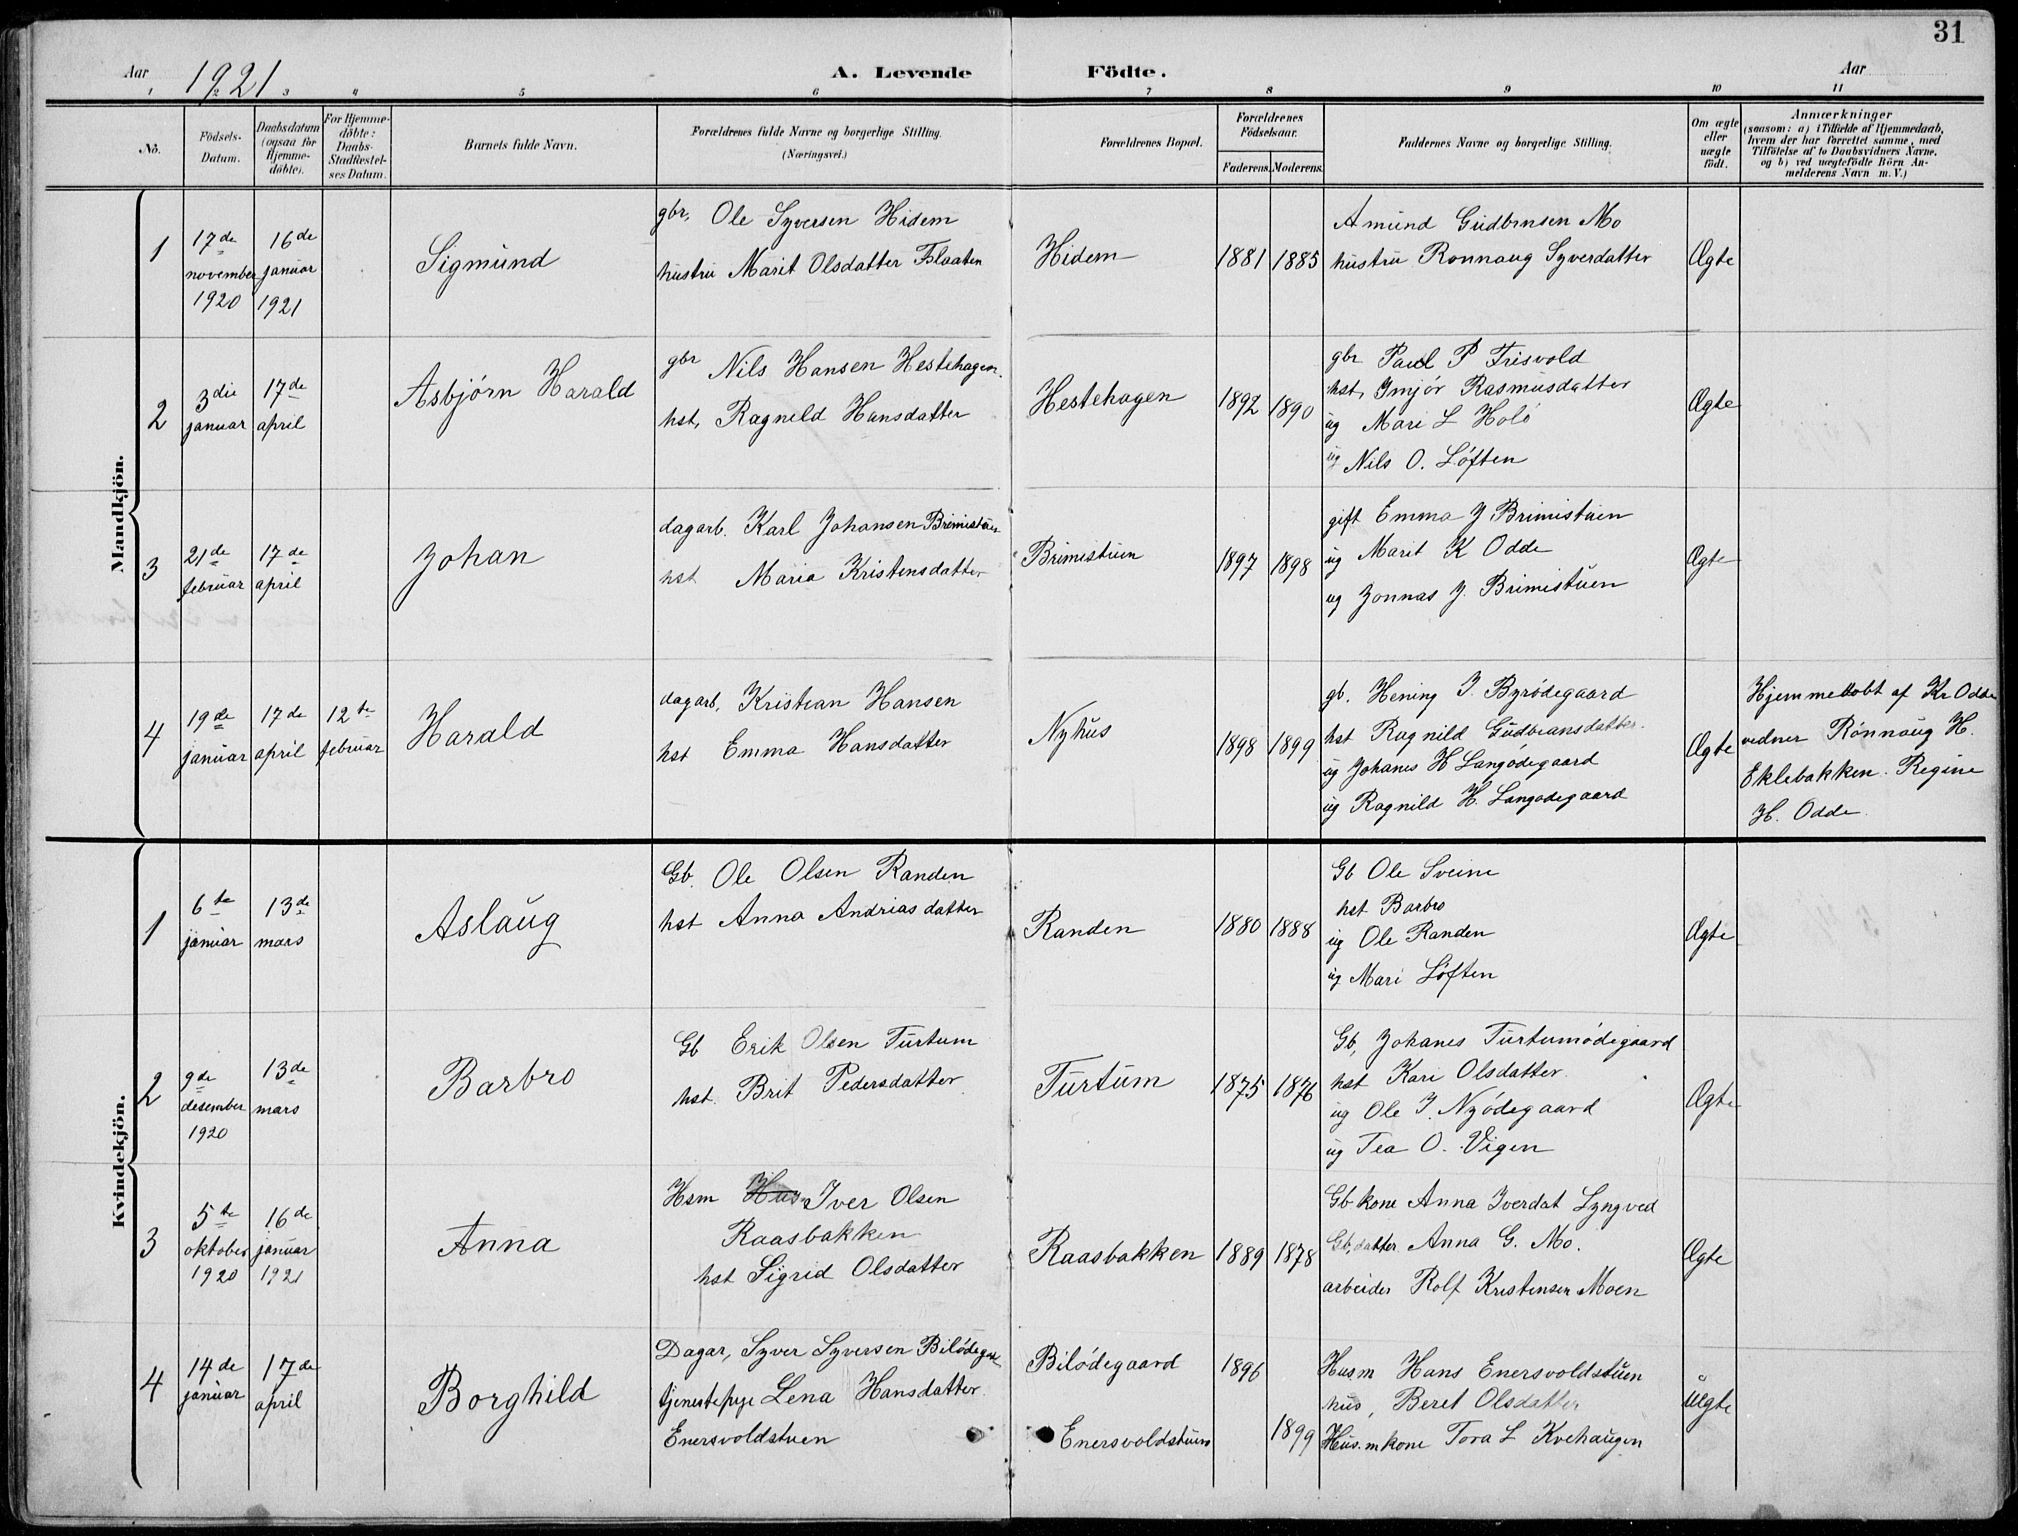 31
Aar 1921
A. Levende Födte.
Aar
1 2 3 4 5 6 7 8 9 10 11
No.
Födsels-
Datum.
Daabsdatum
(ogsaa for
Hjemme-
döbte).
For Hjemme-
döbte:
Daabs-
Stadfæstel-
ses Datum.
Barnets fulde Navn.
Forældrenes fulde Navne og borgerlige Stilling.
(Næringsvei.)
Forældrenes Bopæl.
Forældrenes
Födselsaar.
Faderens. Moderens.
Faddernes Navne og borgerlige Stilling.
Om ægte
eller
uægte
födt.
Anmærkninger
(saasom: a) i Tilfælde af Hjemmedaab,
hvem der har forrettet samme, med
Tilföielse af to Daabsvidners Navne,
og b) ved uægtefödte Börn An-
melderens Navn m. V.)
Mandkjön.
1
17de
november
1920
16de
januar
1921
Sigmund
gbr. Ole Syversen Hidem
hustru Marit Olsdatter Flaaten
Hidem
1881 1885
Amund Gudbrnsen Mo
hustru Ronnaug Syverdatter
Ægte
2
3die
januar
17de
april
Asbjörn Harald
gbr Nils Hansen Hestehagen.
hst, Ragnild Hansdatter
Hestehagen
1892 1890
gbr Paul P Frisvold
hst, Imjör Rasmusdatter
ug Mari L Holö
ug Nils O. Löften
Ægte
3
21de
februar
17de
april
Johan
dagarb. Karl Johansen Brimistuen
hst Maria Kristensdatter
Brimistuen
1897 1898
gift Emma J Brimistuen
ug Marit K Odde
ug Jonnas J. Brimistuen
Ægte
4
19de
januar
17de
april
12te
februar
Harald
dagarb. Kristian Hansen
hst Emma Hansdatter
Nyhus
1898 1899
gb. Hening J. Byrödegaard
hst Ragnild Gudbransdatter.
ug Johanes H Langödegaard
ug Ragnild H. Langodegaard
Ægte
Hjemmedobt af Kr Odde
vedner Rönnaug H.
Eklebakken. Regine
H. Odde.
Kvindekjön.
1
6te
januar
13de
mars
Aslaug
Gb. Ole Olsen Randen
hst Anna Andriasdatter
Randen
1880 1888
Gb Ole Sveine
hst Barbro
ug Ole Randen
ug Mari Löften
Ægte
2
9de
desember
1920
13de
mars
Barbro
Gb Erik Olsen Turtum
hst. Brit Pedersdatter
Turtum
1875 1876
Gb, Johanes Turtumödegaard
hst Kari Olsdatter.
ug Ole J. Nyödegaard
ug Tea O. Vigen
Ægte
3
5te
oktober
1920
16de
januar
1921
Anna
Hsm Hus Iver Olsen
Raasbakken
hst Sigrid Olsdatter
Raasbakken
1889 1878
Gb kone Anna Iverdat Lyngved
Gb, datter. Anna G. Mo.
arbeider Rolf Kristensen Moen
Ægte
4
14de
januar
17de
april
Borghild
Dagar, Syver Syversen Bilödeg
tjenestepige Lena Hansdatter.
Enersvoldstuen
Bilödegaard
Enersvoldstuen
1896
1899
Husm Hans Enersvoldstuen
hus, Beret Olsdatter
Hus.mkone Tora L Kvehaugen
Uægte